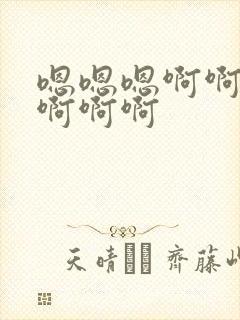 嗯嗯嗯啊啊
啊啊啊
天晴 齊藤